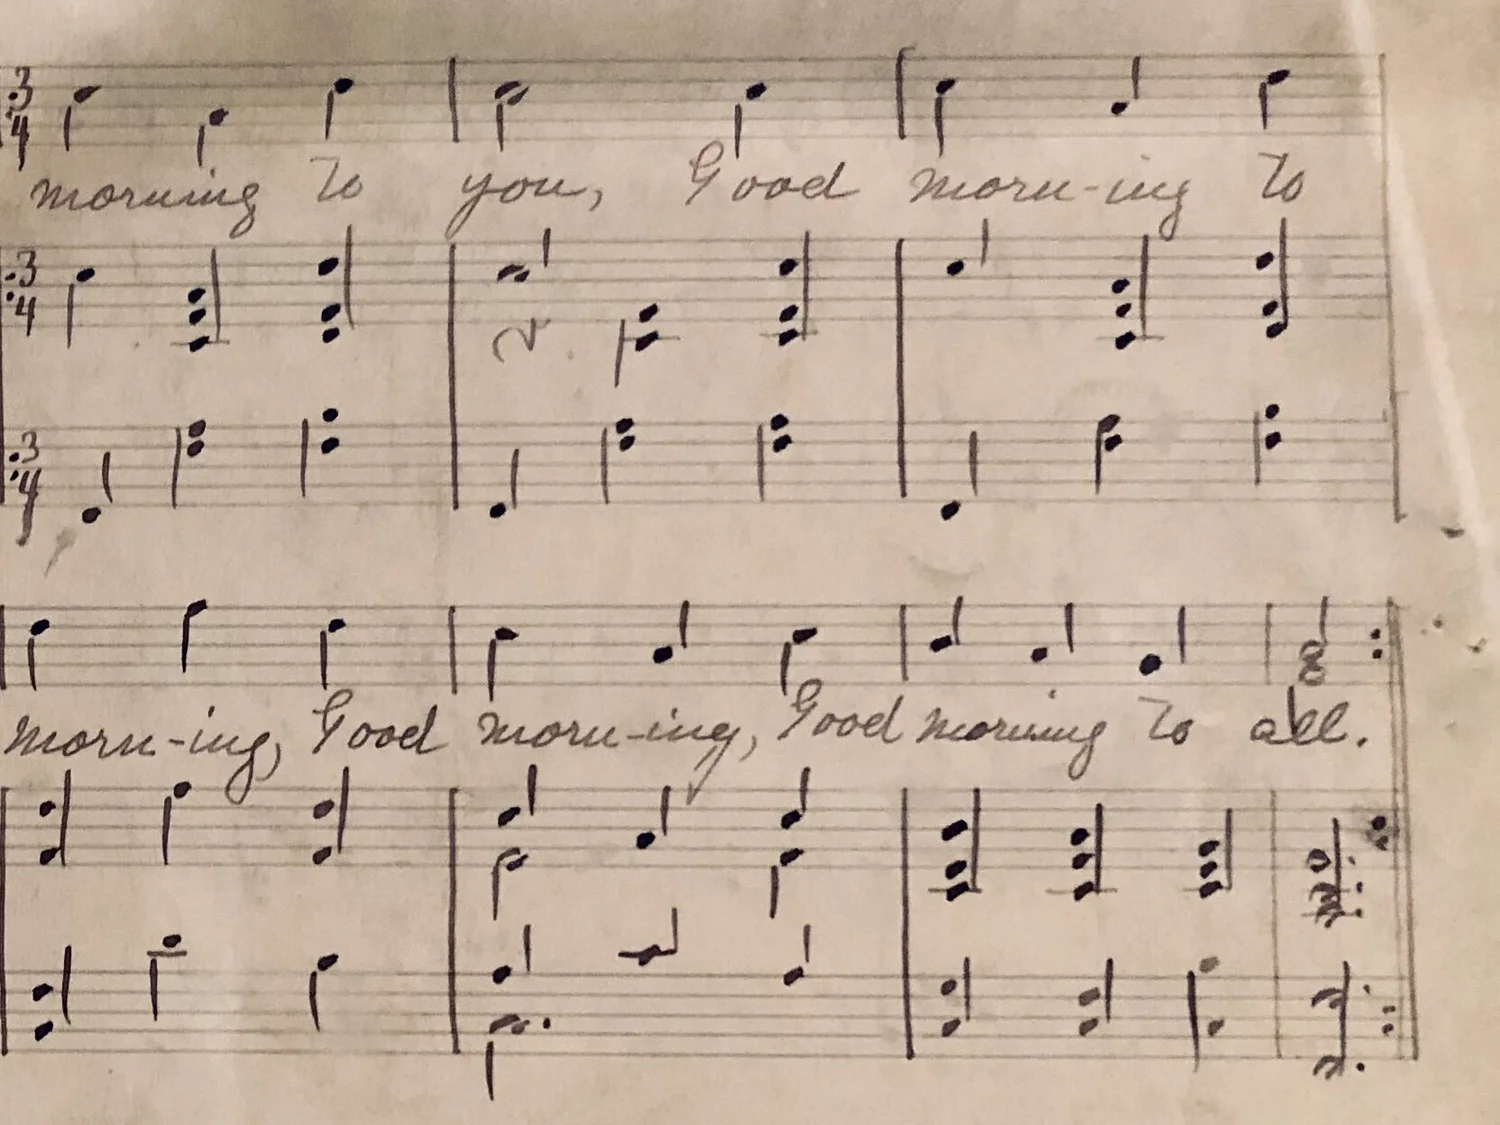 3/4
morning to you, Good morn-ing to
3/4
3/4
morn-ing, Good morn-ing, Good morning to all.